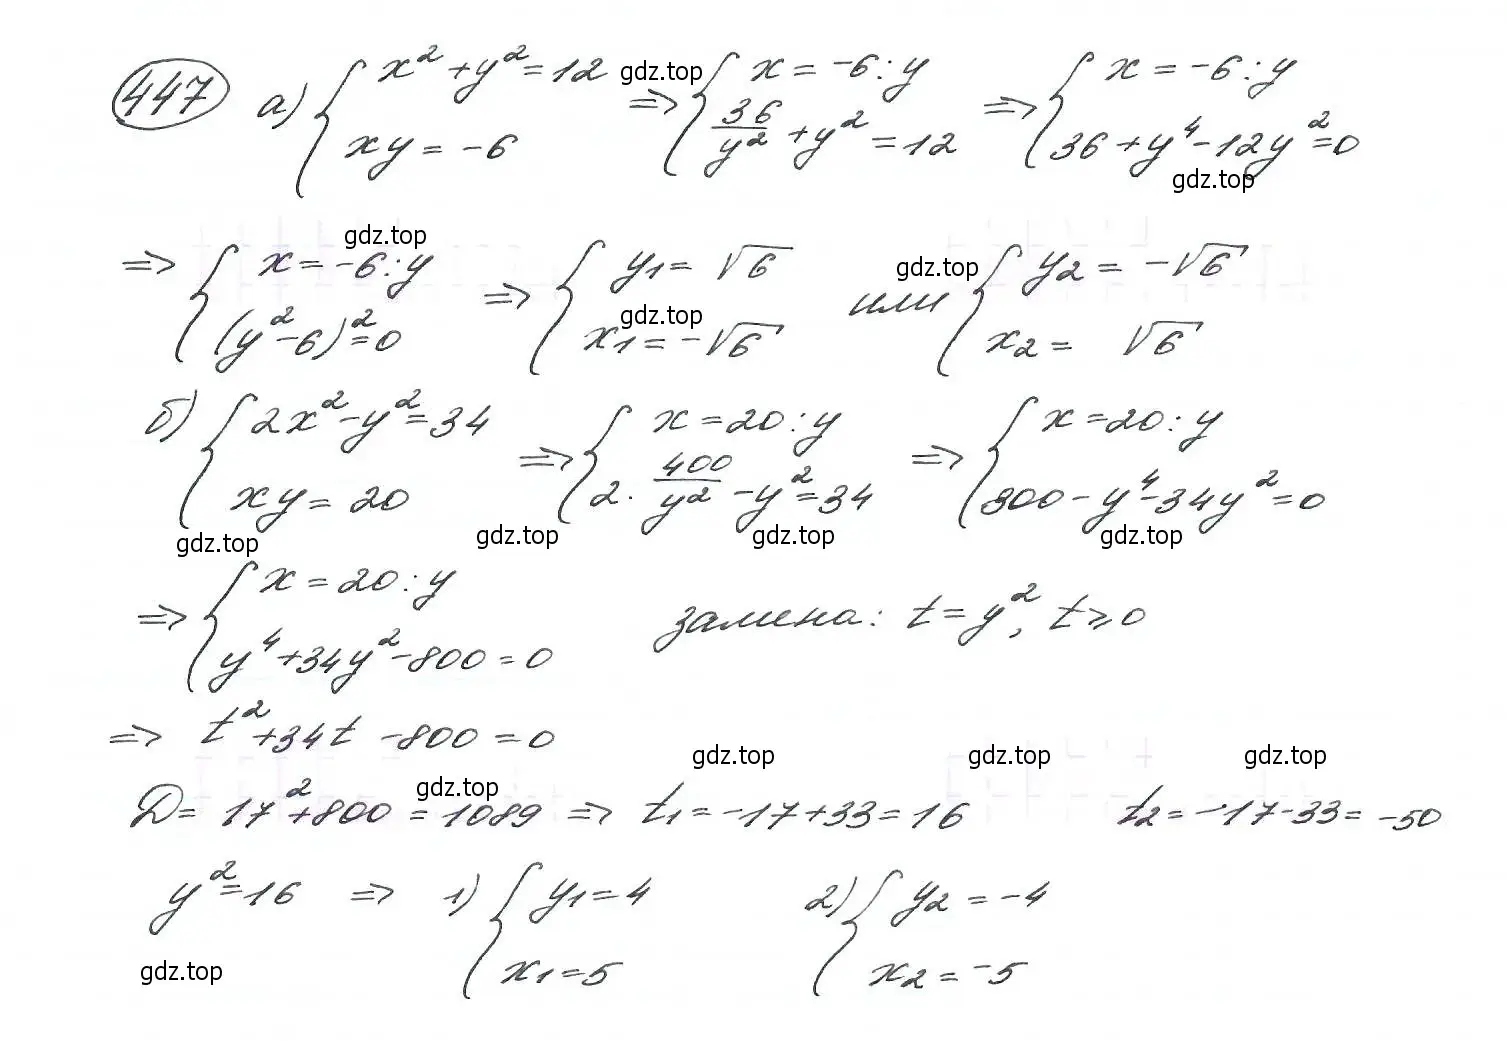 447 а) { x² + y² = 12 ; xy = -6 => { x = -6 : y ; 36/y² + y² = 12 => { x = -6 : y ; 36 + y⁴ - 12y² = 0
gdz.top
gdz.top
=> { x = -6 : y ; (y² - 6)² = 0 => { y1 = √6 ; x1 = -√6 или { y2 = -√6 ; x2 = √6
gdz.top gdz.top gdz.top
б) { 2x² - y² = 34 ; xy = 20 => { x = 20 : y ; 2 · 400/y² - y² = 34 => { x = 20 : y ; 800 - y⁴ - 34y² = 0
gdz.top gdz.top gdz.top gdz.top
=> { x = 20 : y ; y⁴ + 34y² - 800 = 0 замена: t = y², t ≥ 0
=> t² + 34t - 800 = 0
gdz.top gdz.top gdz.top gdz.top
D = 17² + 800 = 1089 => t1 = -17 + 33 = 16 t2 = -17 - 33 = -50
y² = 16 => 1) { y1 = 4 ; x1 = 5 2) { y2 = -4 ; x2 = -5
gdz.top